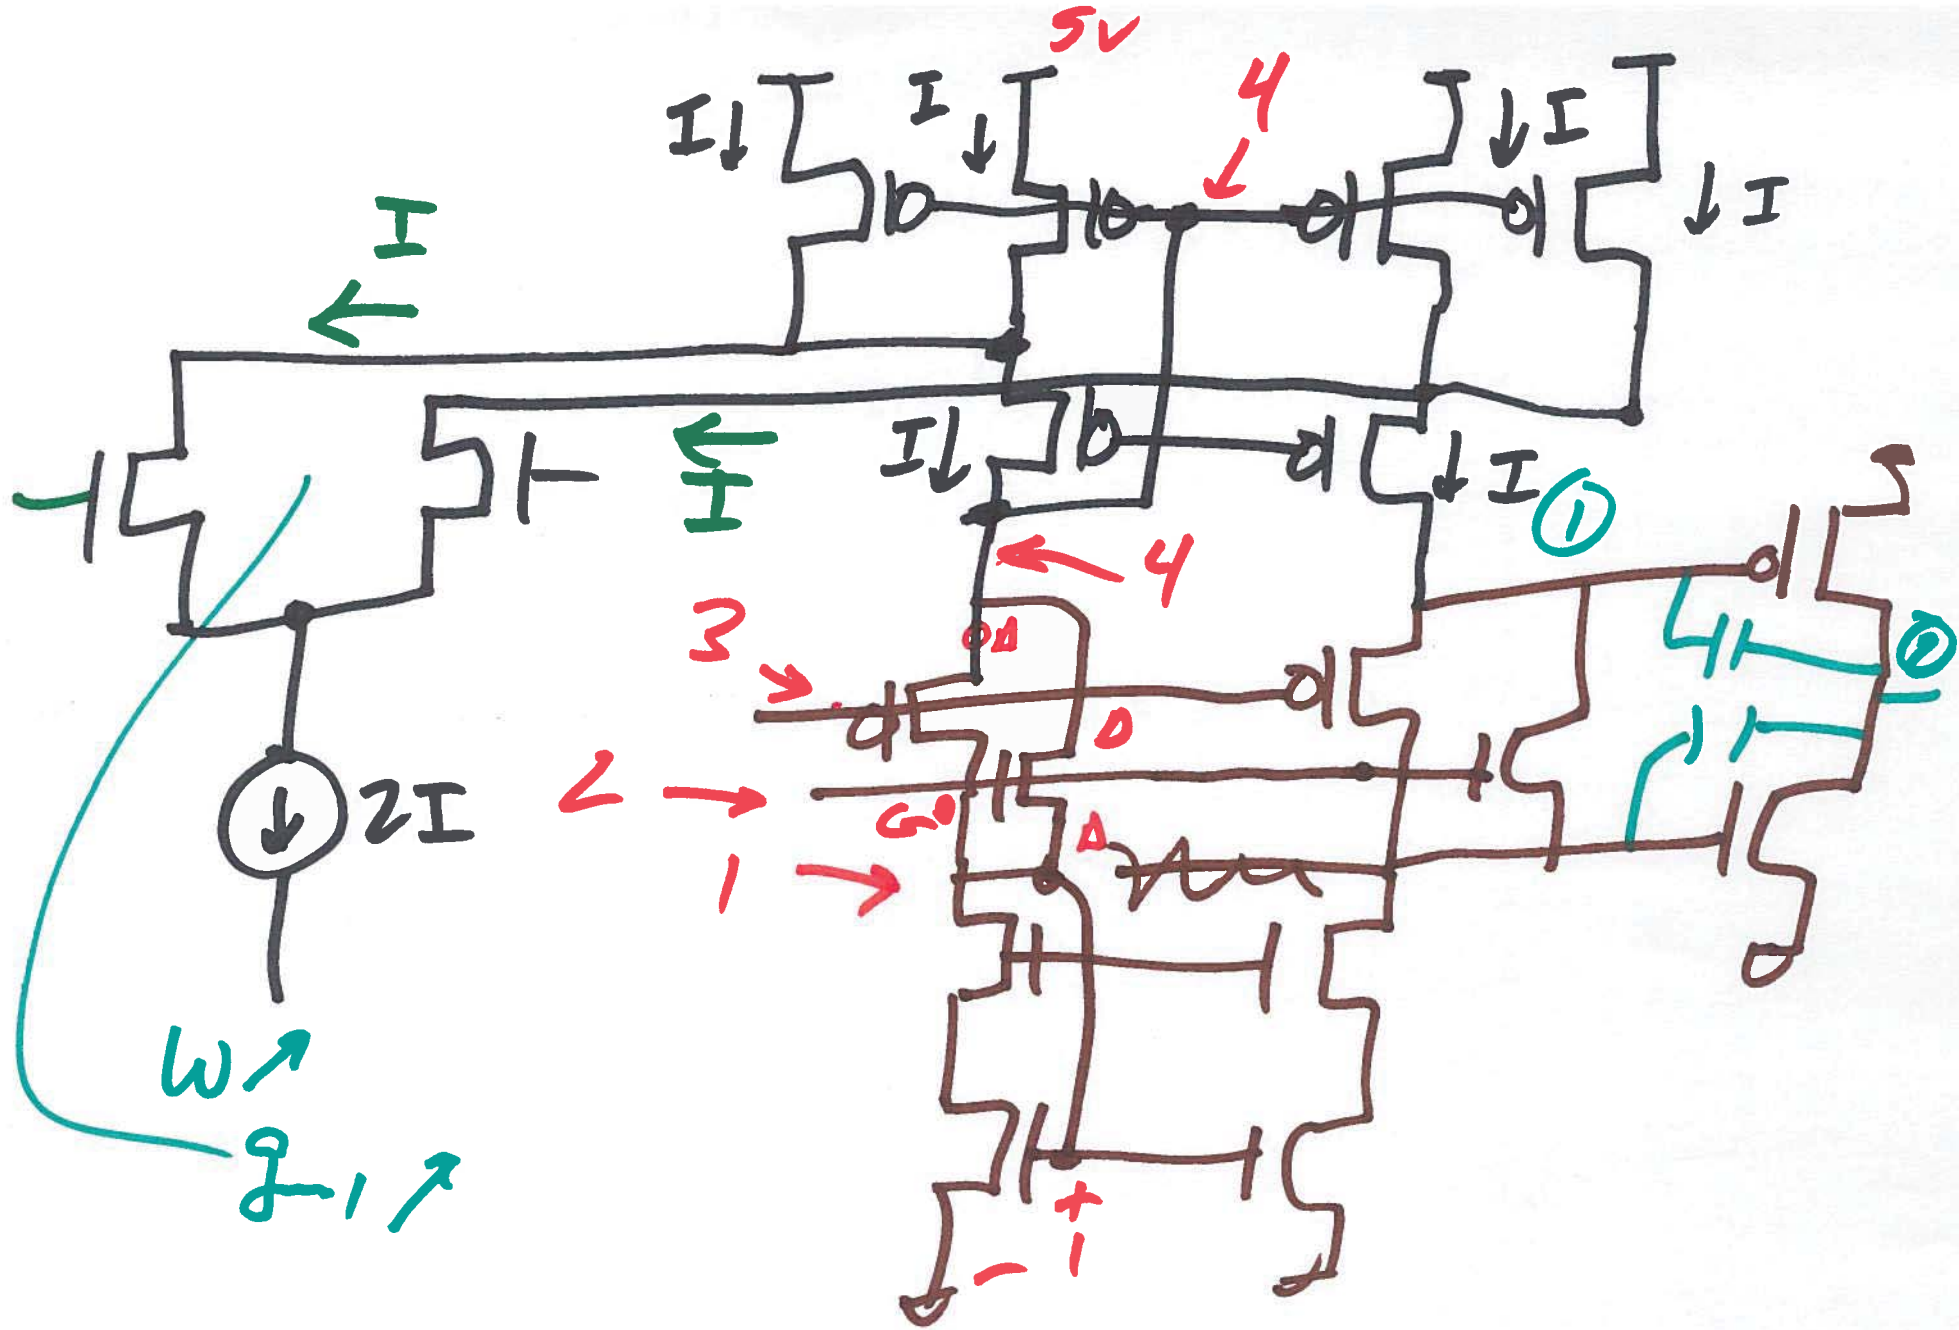 5V
4
I↓
I
↓
↓I
↓I
I
←
I↓
←
I
↓I
①
4
3
②
2
G
D
1
2I
W↗
g_1↗
+
1
-